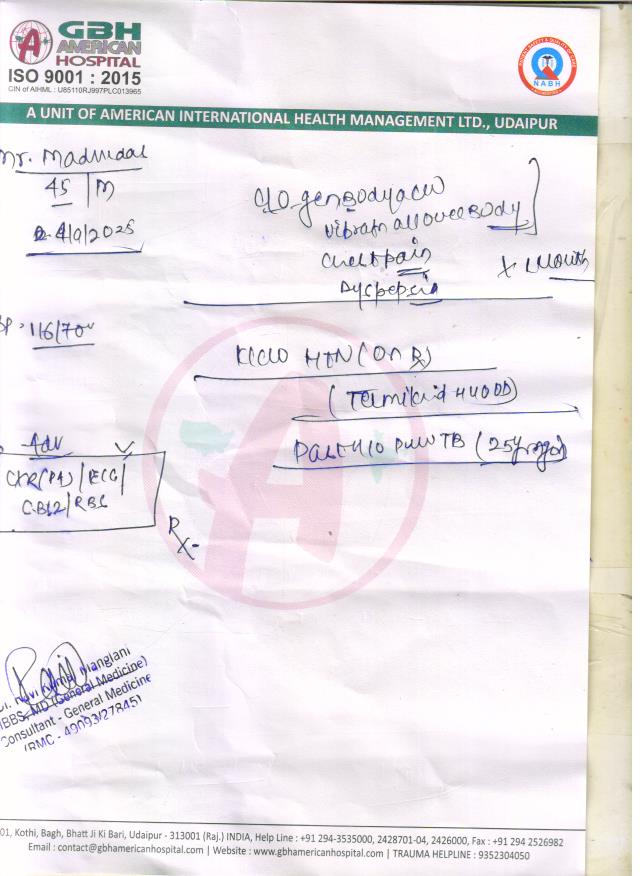 GBH
AMERICAN
HOSPITAL
ISO 9001 : 2015
CIN of AIHML : U85110RJ997PLC013965
PATIENT SAFETY & QUALITY OF CARE
NABH
A UNIT OF AMERICAN INTERNATIONAL HEALTH MANAGEMENT LTD., UDAIPUR
Mr. Madnidal
45 | M
4/9/2025
C/O gen Body ache
vibratn all over BODY
Chest pain
x 1 Month
Dyspepsia
BP : 116/70
K/C/O HTN (On Rx)
(Telmikind H 40 OD)
PAST H/O Pulm TB (25 yr ago)
Adv
CXR(PA) / ECG /
C-B12 / RBS
Rx-
Dr. Ravi Kumar Manglani
MBBS, MD (General Medicine)
Consultant - General Medicine
(RMC - 49093/27845)
01, Kothi, Bagh, Bhatt Ji Ki Bari, Udaipur - 313001 (Raj.) INDIA, Help Line : +91 294-3535000, 2428701-04, 2426000, Fax : +91 294 2526982
Email : contact@gbhamericanhospital.com | Website : www.gbhamericanhospital.com | TRAUMA HELPLINE : 9352304050